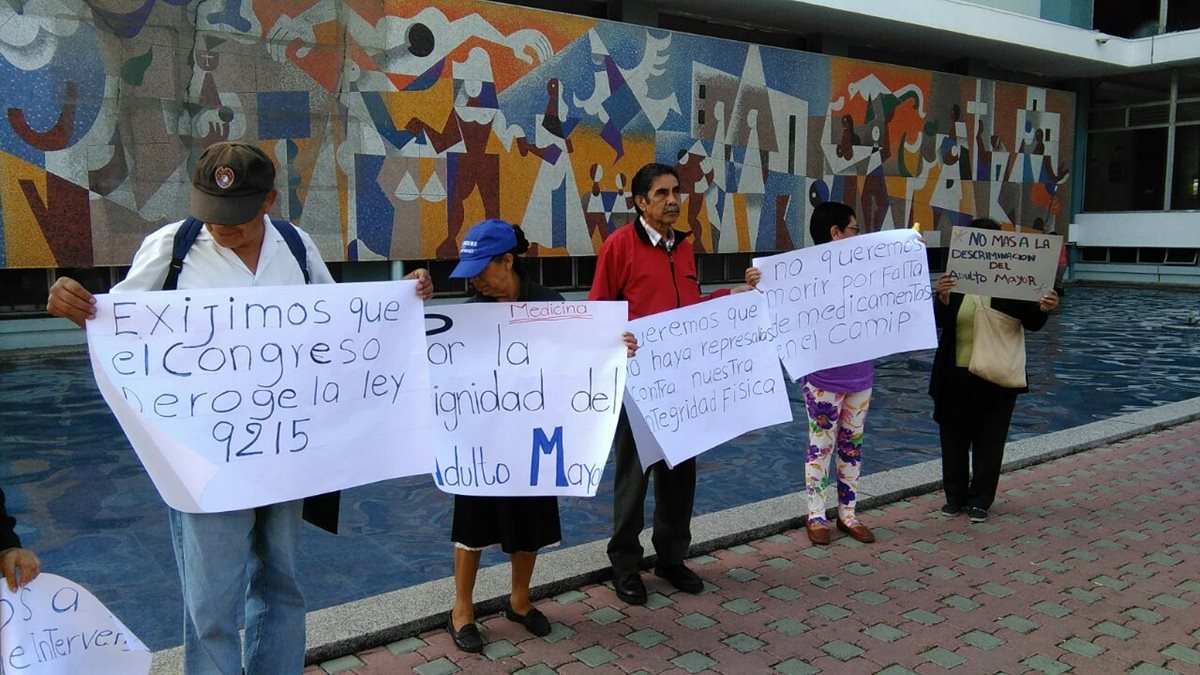 Exijimos que
el Congreso
Deroge la ley
9215
Medicina
Por la
ignidad del
Adulto Mayo
ueremos que
o haya represa
contra nuestra
ntegridad Física
no queremos
morir por Falta
de medicamentos
en el Camip
NO MAS A LA
DESCRIMINACION
DEL
Adulto Mayor
os a
e interven